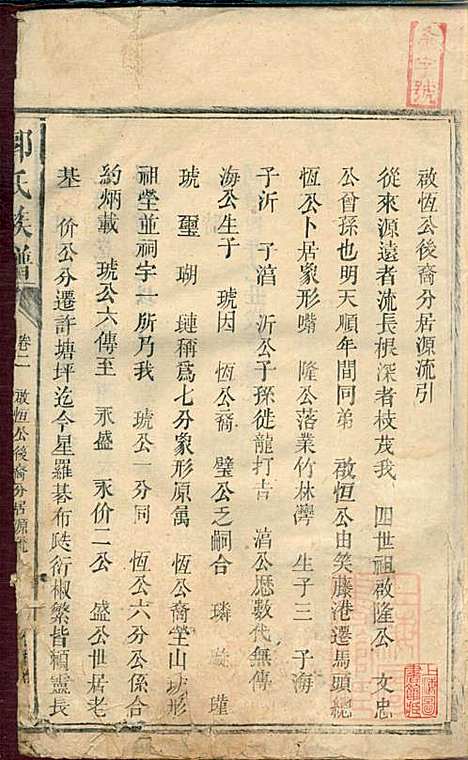 啟恆公後裔分居源流引
從來源遠者流長根深者枝茂我 四世祖啟隆公 文忠
公曾孫也明天順年間同弟 啟恆公由笑藤港遷馬頭總
恆公卜居象形嘴 隆公落業竹林灣 生子三 子海
子沂 子溍 沂公子孫徙龍打 溍公歷數代無傳
海公生子 琥因 恆公裔 璧公乏嗣合 璘 璇 瑾
琥 璽 瑚 璉稱為七分象形原屬 恆公裔塋山玏形
祖塋並祠宇一所乃我 琥公一分同 恆公六分公係合
約炳載 琥公六傳至 永盛 永价二公 盛公世居老
基 价公分遷許塘坪迄今星羅碁布陗衍椒繁皆賴靈長
郭氏族譜 卷二 啟恆公後裔分居源流
字號